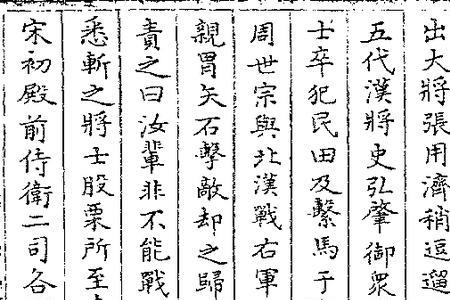 出大將張用濟稍逗遛
五代漢將史弘肇御衆
士卒犯民田及繫馬于
周世宗與北漢戰右軍
親冒矢石擊敵却之歸
責之曰汝輩非不能戰
悉斬之將士股栗所至
宋初殿前侍衛二司各